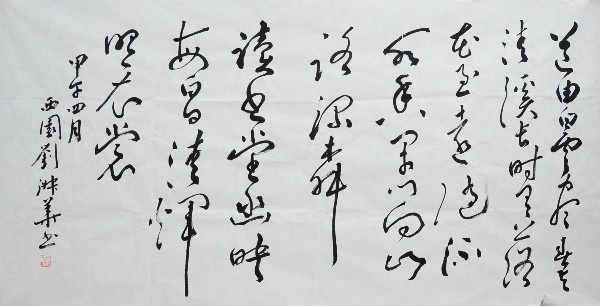 道由白雲盡春與
清溪長時有落
花至遠隨流
水香閑門向山
路深柳
讀書堂幽映
每白日清輝
照衣裳
甲午四月
西園劉淑華書